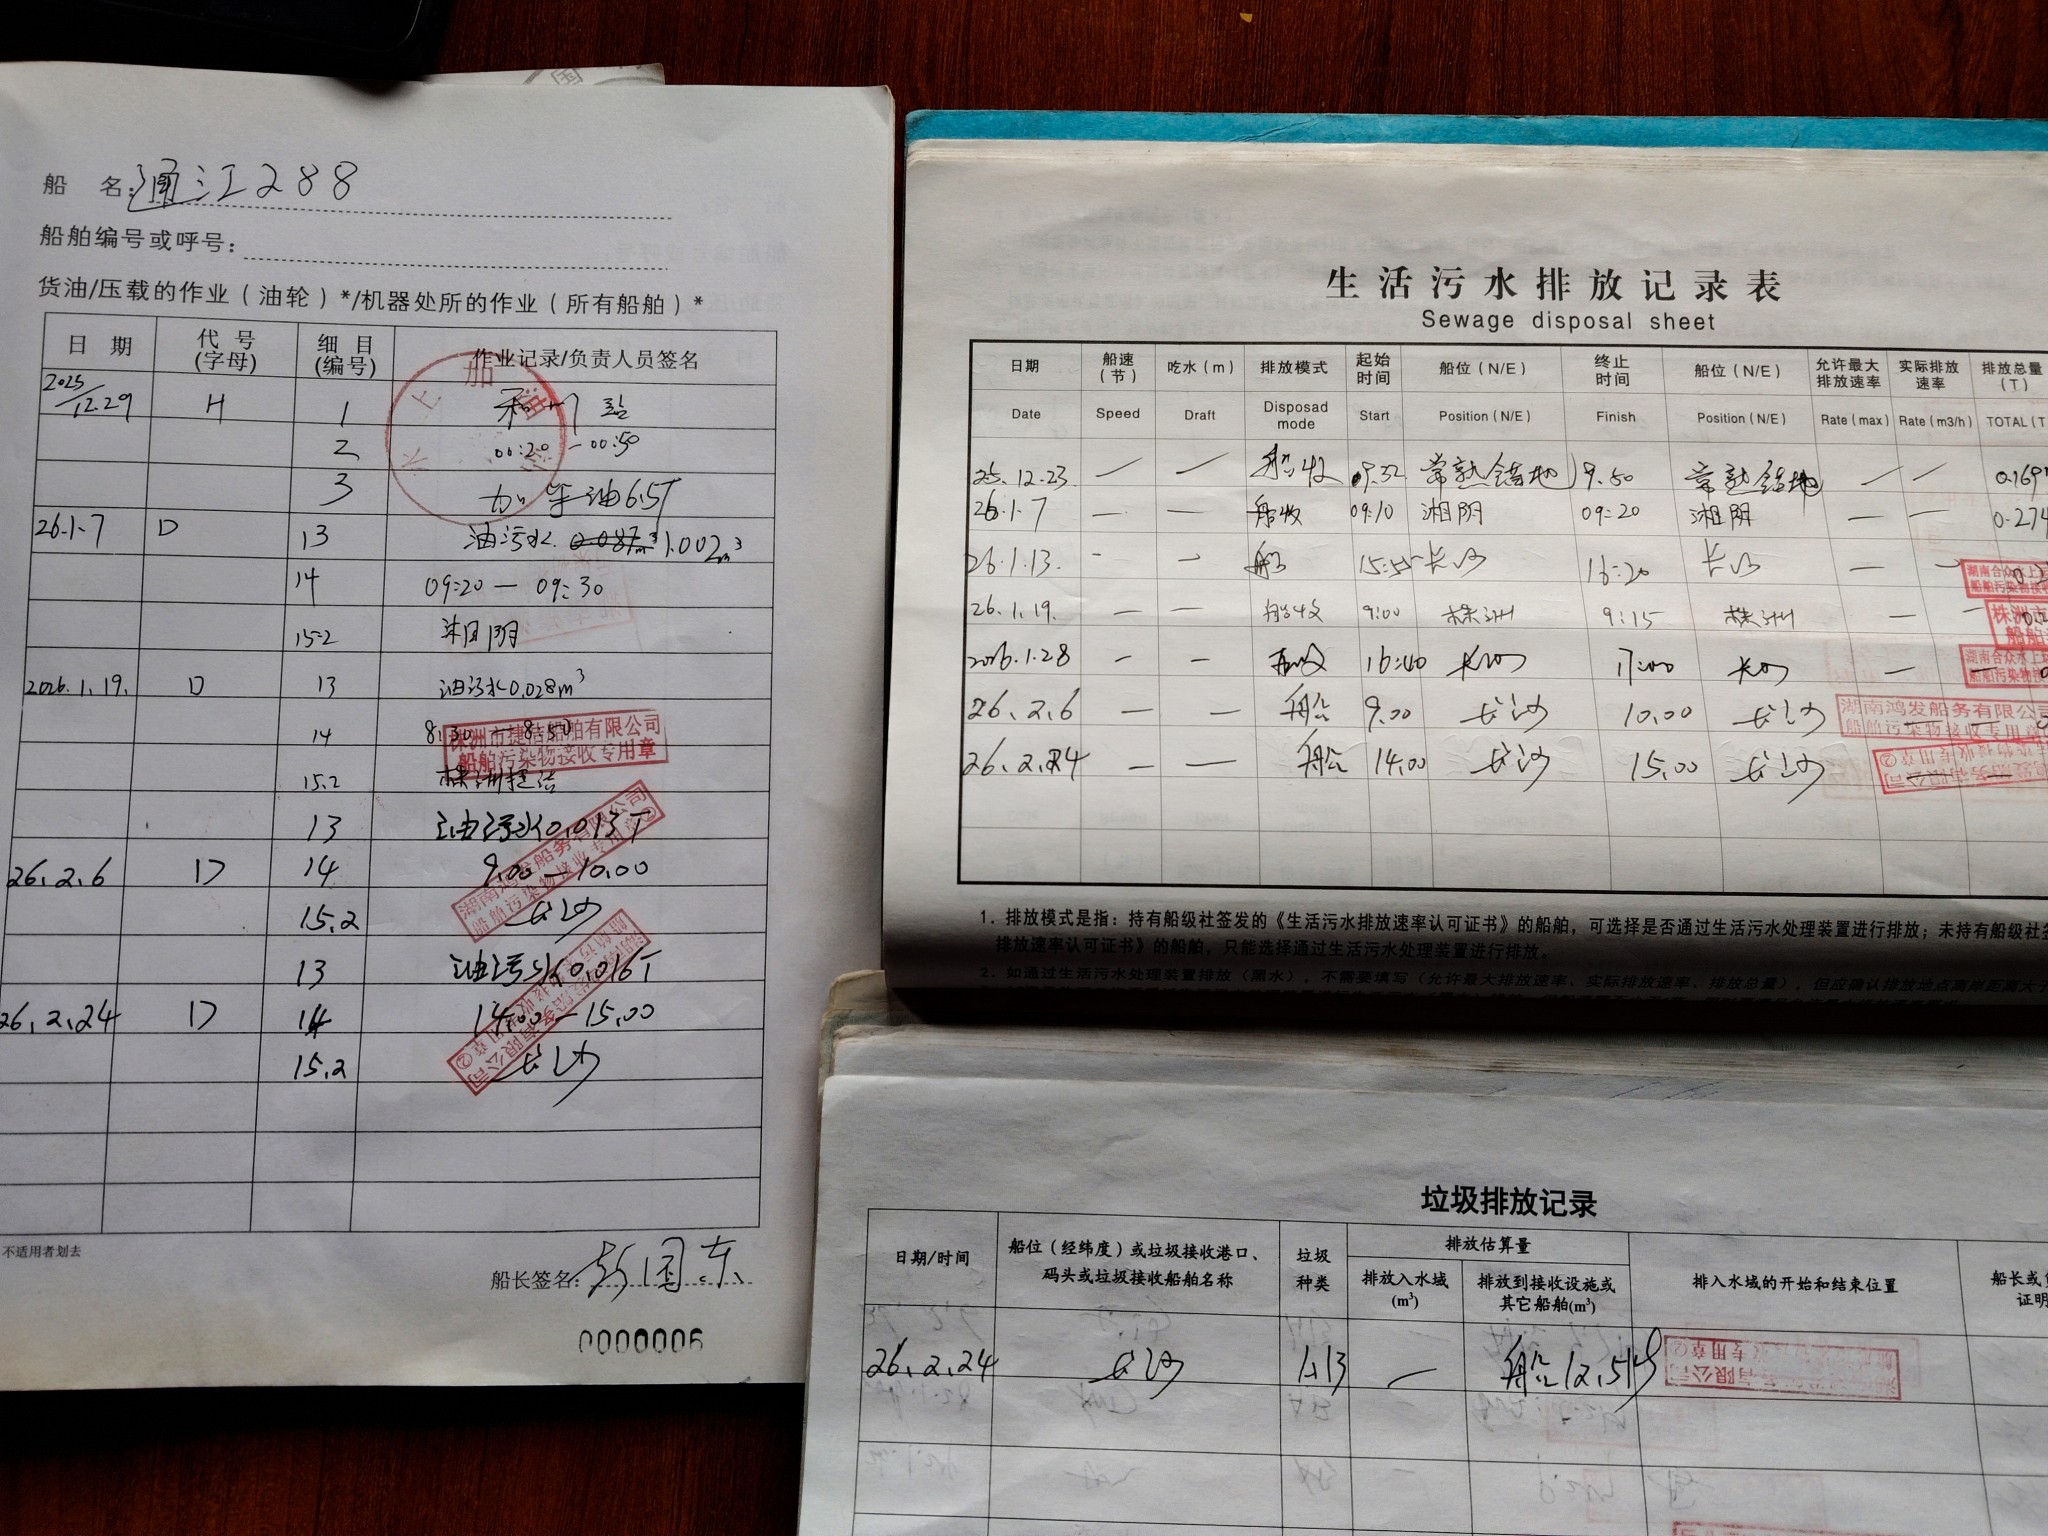 船 名: 通江288
船舶编号或呼号:
货油/压载的作业（油轮）*/机器处所的作业（所有船舶）*
日 期 代 号 (字母) 细 目 (编号) 作业记录/负责人员签名
2025/12.29 H 1
2 00:20-00:50
3 加柴油6.5T
26.1.7 D 13 油污水 0.087m³ 1.002m³
14 09:20 — 09:30
15.2 湘阴
2026.1.19. D 13 油污水0.028m³
14 8:30 — 8:50
株洲市捷洁船舶有限公司
船舶污染物接收专用章
15.2 株洲捷洁
13 油污水0.013T
26.2.6 D 14 9.00—10.00
湖南鸿发船务有限公司
船舶污染物接收专用章②
15.2 长沙
13 油污水0.016T
26.2.24 D 14 14.00—15.00
15.2 长沙
不适用者划去
船长签名: 彭国东
0000006
生活污水排放记录表
Sewage disposal sheet
日期 船速（节） 吃水（m） 排放模式 起始时间 船位（N/E） 终止时间 船位（N/E） 允许最大排放速率 实际排放速率 排放总量（T）
Date Speed Draft Disposad mode Start Position（N/E） Finish Position（N/E） Rate（max） Rate（m3/h） TOTAL（T
25.12.23 — — 船收 09.32 常熟锚地 9.50 常熟锚地 — — 0.169
26.1.7 — — 船收 09:10 湘阴 09:20 湘阴 — — 0.274
26.1.13. - — 船 15:55 长沙 16:20 长沙 — —
湖南合众水上
船舶污染物接
26.1.19. — — 船收 9:00 株洲 9:15 株洲 — —
株洲市
船舶
2026.1.28 — — 16:40 长沙 17:00 长沙 — —
湖南合众水上
船舶污染物接
26.2.6 — — 船 9.00 长沙 10.00 长沙
湖南鸿发船务有限公司
船舶污染物接收专用章
26.2.24 — — 船 14.00 长沙 15.00 长沙
1．排放模式是指：持有船级社签发的《生活污水排放速率认可证书》的船舶，可选择是否通过生活污水处理装置进行排放；未持有船级社签
排放速率认可证书》的船舶，只能选择通过生活污水处理装置进行排放。
2．如通过生活污水处理装置排放（黑水），不需要填写（允许最大排放速率、实际排放速率、排放总量），但应确认排放地点离岸距离大于
垃圾排放记录
日期/时间 船位（经纬度）或垃圾接收港口、码头或垃圾接收船舶名称 垃圾种类 排放估算量 排入水域的开始和结束位置
排放入水域(m³) 排放到接收设施或其它船舶(m³)
26.2.24 长沙 — 船12.5kg